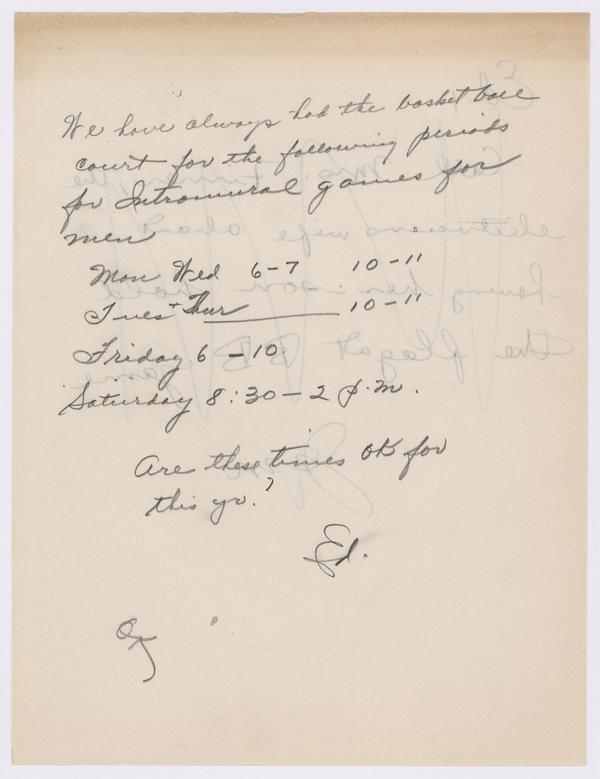 We have always had the basket ball
court for the following periods
for Intramural games for
men
Mon Wed 6-7 10-11
Tues + Thur ______ 10-11
Friday 6 - 10
Saturday 8:30 - 2 p.m.
Are these times OK for
this yr.?
Ed.